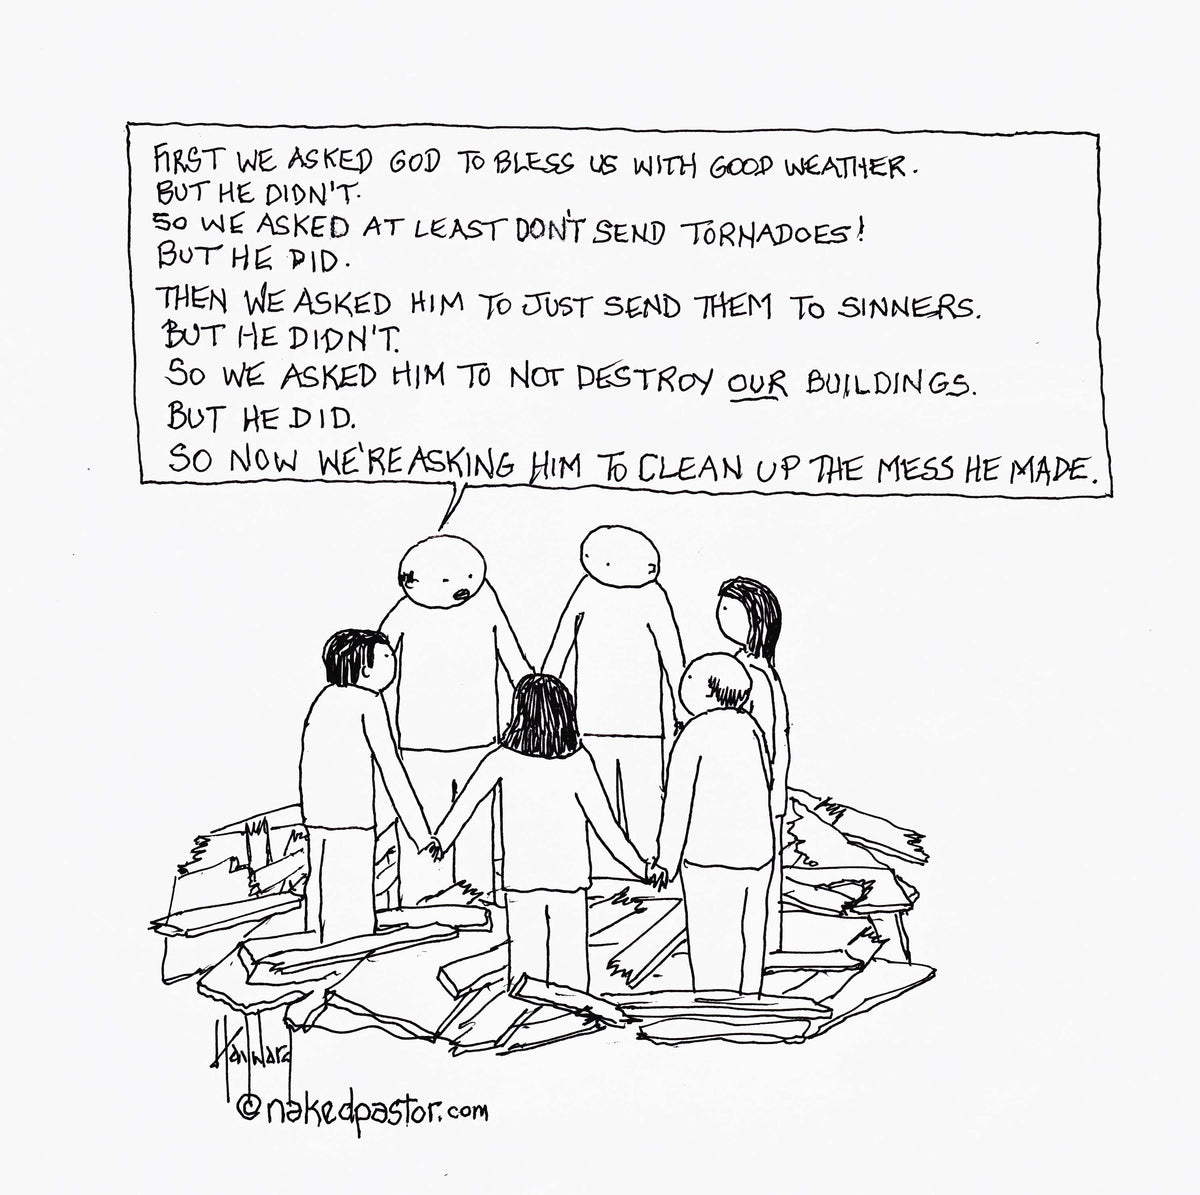 FIRST WE ASKED GOD TO BLESS US WITH GOOD WEATHER.
BUT HE DIDN'T.
SO WE ASKED AT LEAST DON'T SEND TORNADOES!
BUT HE DID.
THEN WE ASKED HIM TO JUST SEND THEM TO SINNERS.
BUT HE DIDN'T.
SO WE ASKED HIM TO NOT DESTROY OUR BUILDINGS.
BUT HE DID.
SO NOW WE'RE ASKING HIM TO CLEAN UP THE MESS HE MADE.
Hayward
©nakedpastor.com